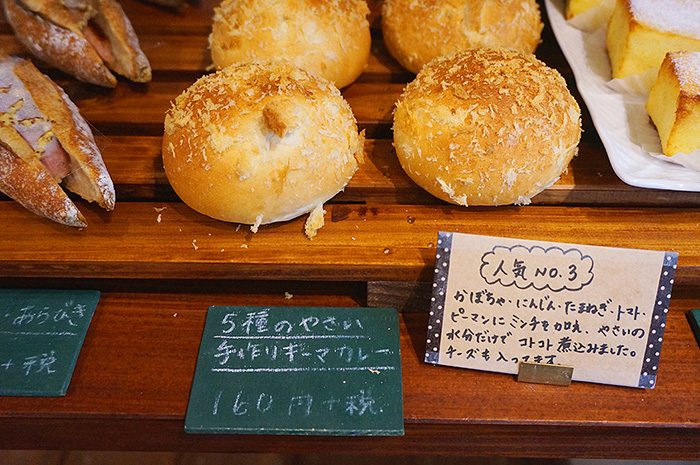 ・あらびき
+税
5種のやさい
手作りキーマカレー
160円+税
人気 NO.3
かぼちゃ、にんじん・たまねぎ・トマト・
ピーマンにミンチを加え、やさいの
水分だけでコトコト煮込みました。
チーズも入ってます